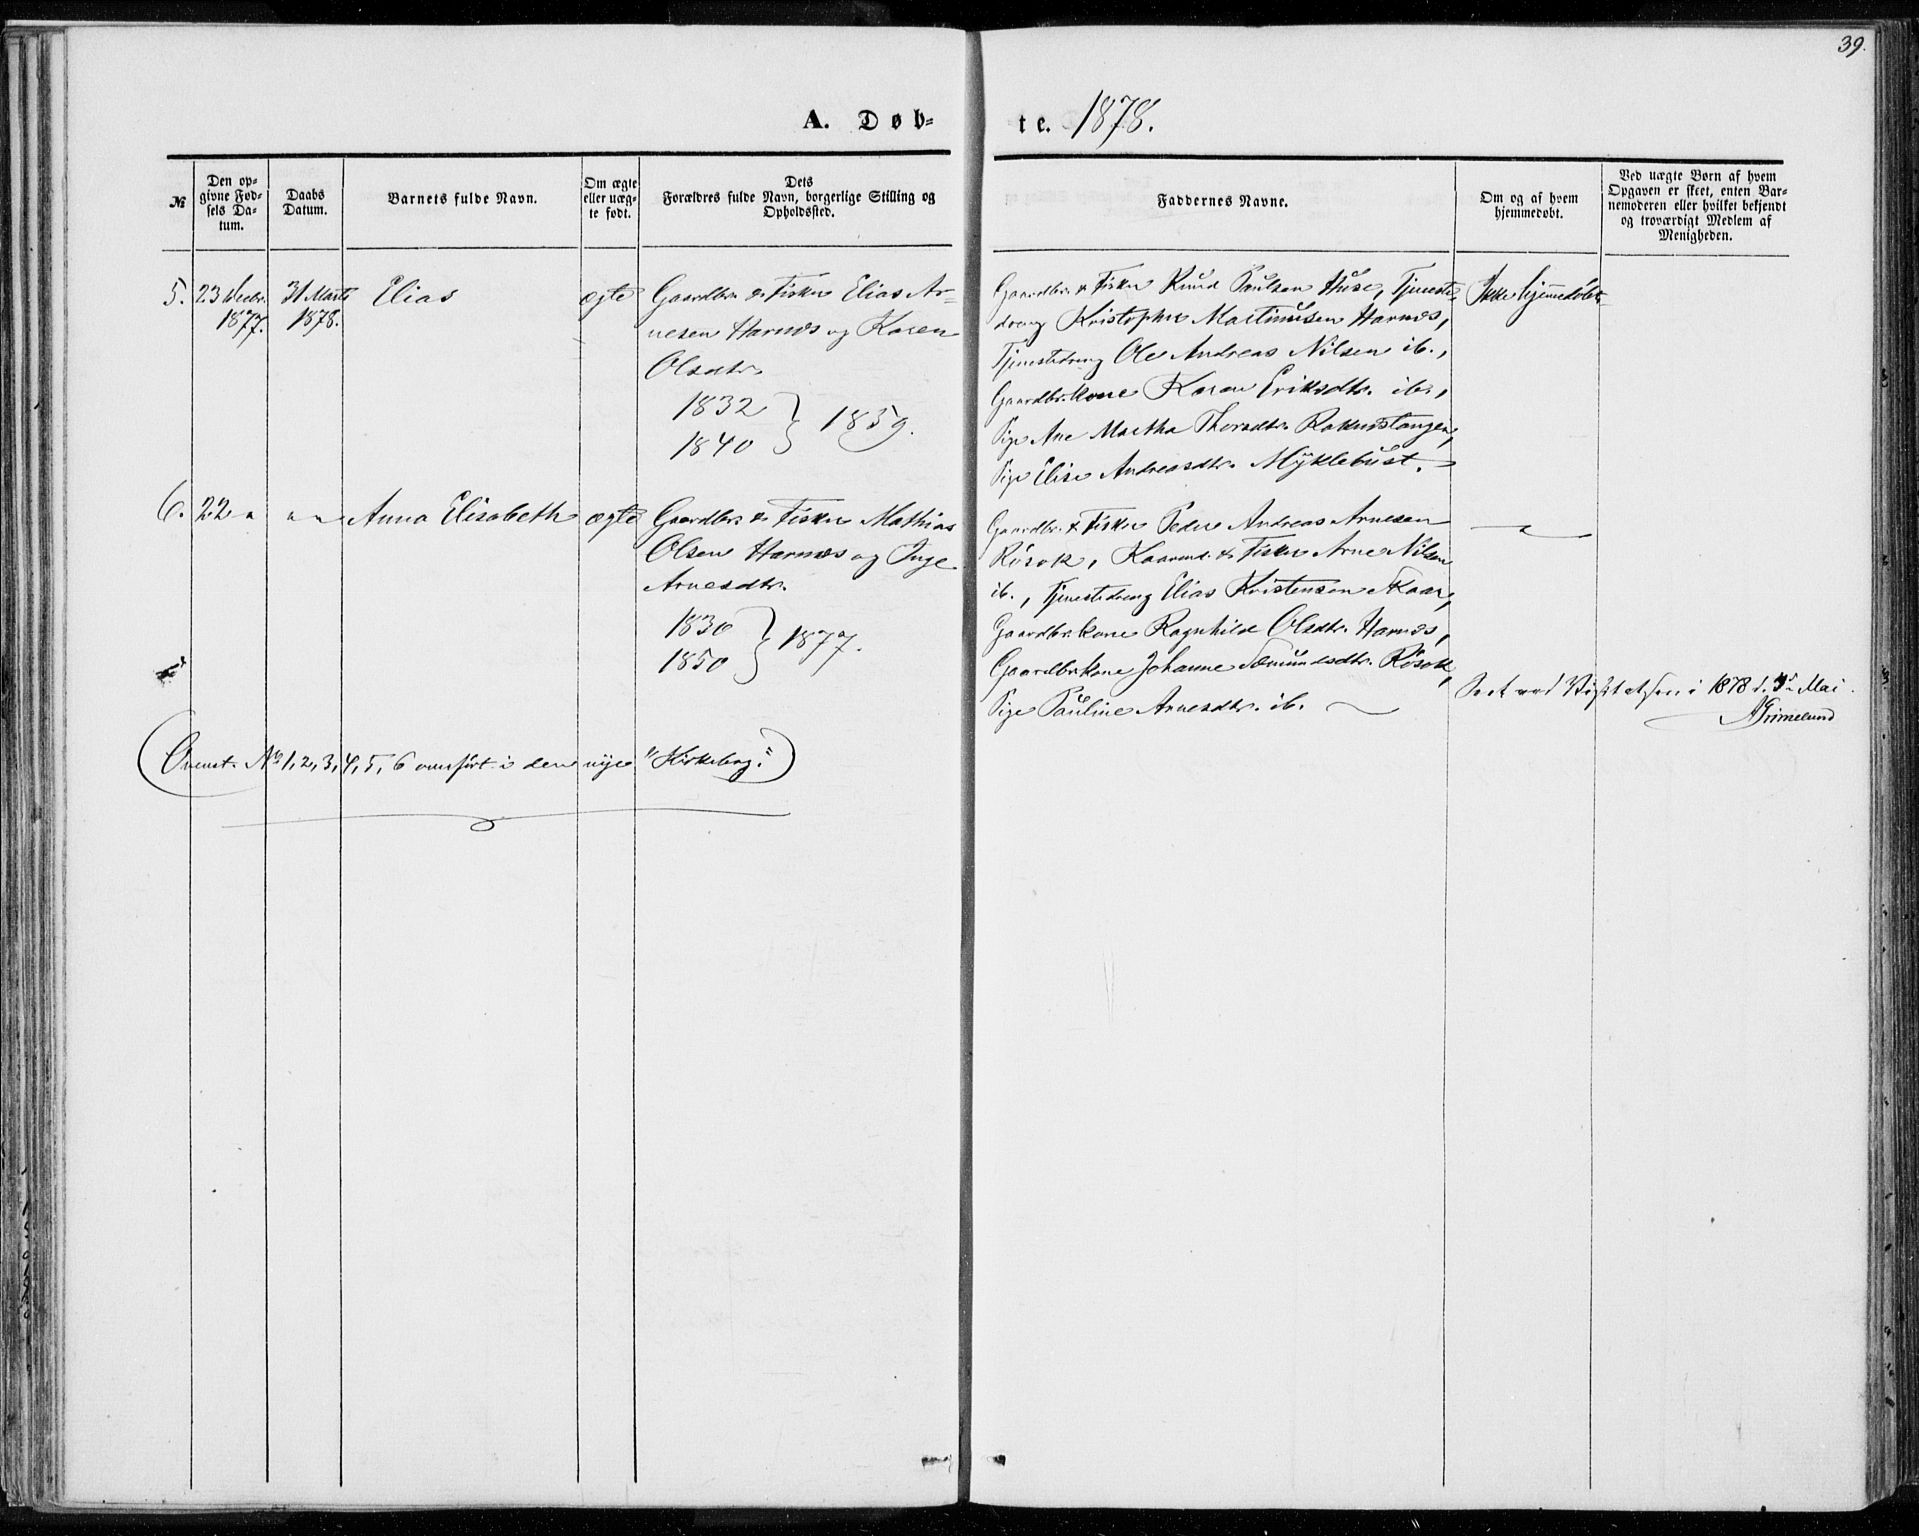 39.
A. Døb-
te. 1878.
№
Den op-
givne Fød-
sels Da-
tum.
Daabs
Datum.
Barnets fulde Navn.
Om ægte
eller uæg-
te født.
Dets
Forældres fulde Navn, borgerlige Stilling og
Opholdssted.
Faddernes Navne.
Om og af hvem
hjemmedøbt.
Ved uægte Børn af hvem
Opgaven er skeet, enten Bar-
nemoderen eller hvilket bekjendt
og troværdigt Medlem af
Menigheden.
5.
23 Decbr.
1877.
31 Marts
1878.
Elias
ægte
Gaardbr. & Fisker Elias Ar-
nesen Harnæs og Karen
Olsdtr.
1832
1840 } 1859.
Gaardbr. & Fisker Knud Paulsen Huse, Tjeneste-
dreng Kristopher Martinusen Harnæs,
Tjenestedreng Ole Andreas Nilsen ib.,
Gaardbr.kone Karen Eriksdtr. ib.,
Pige Ane Martha Thorsdtr. Raknestangen,
Pige Elise Andreasdtr. Myklebust.
Ikke hjemmedøbt
6.
22 "
" "
Anna Elisabeth
ægte
Gaardbr. & Fisker Mathias
Olsen Harnæs og Inge
Arnesdtr.
1830
1850 } 1877.
Gaardbr. & Fisker Peder Andreas Arnesen
Røsok, Kaarmd. & Fisker Arne Nilsen
ib., Tjenestedreng Elias Kristensen Skaar,
Gaardbr.kone Ragnhilde Olsdtr. Harnæs,
Gaardbr.kone Johanne Sæmundsdtr. Røsok,
Pige Pauline Arnesdtr. ib.
Seet ved Visitatsen i 1878 d. Mai
Grimelund
(Ovenst. No 1, 2, 3, 4, 5, 6 overført i den nye "Kirkebog".)